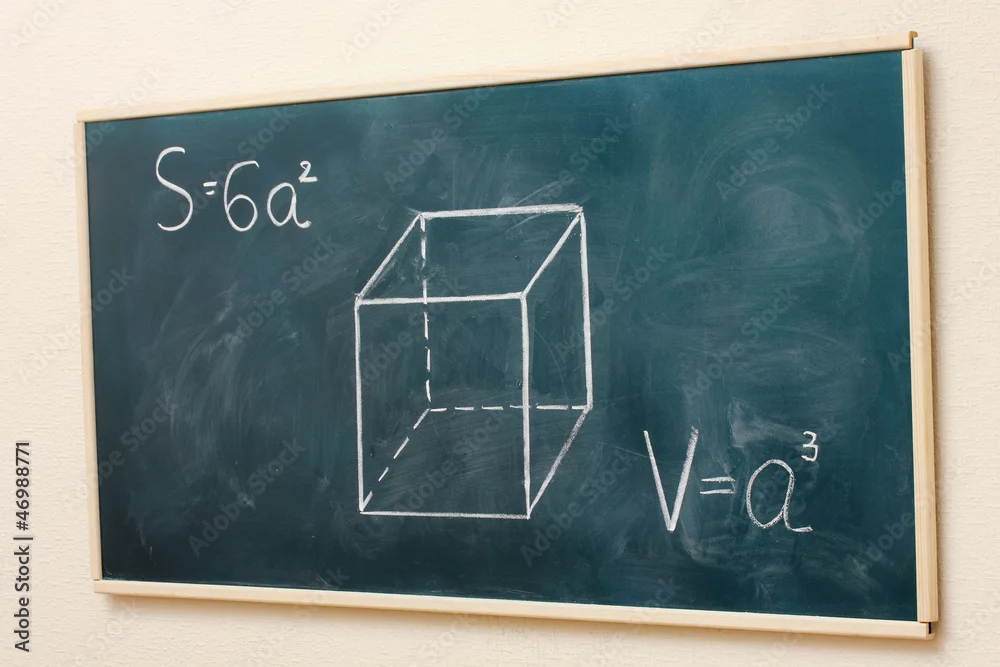 S=6a²
V=a³
Adobe Stock | #46988771